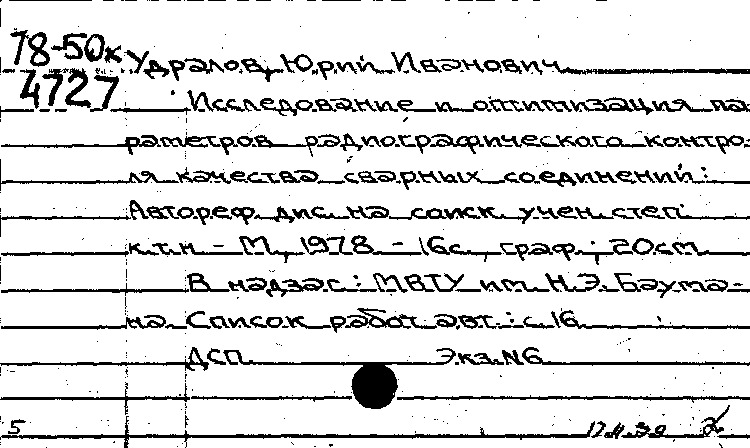 78-50к Удралов, Юрий Иванович.
4727 Исследование и оптимизация па-
раметров радиографического контро-
ля качества сварных соединений:
Автореф. дис. на соиск. учен. степ.
к.т.н - М., 1978 - 16с., граф.; 20см.
В надзаг.: МВТУ им. Н.Э. Баума-
на. Список работ авт.: с.16.
ДСП. Экз.N6
5